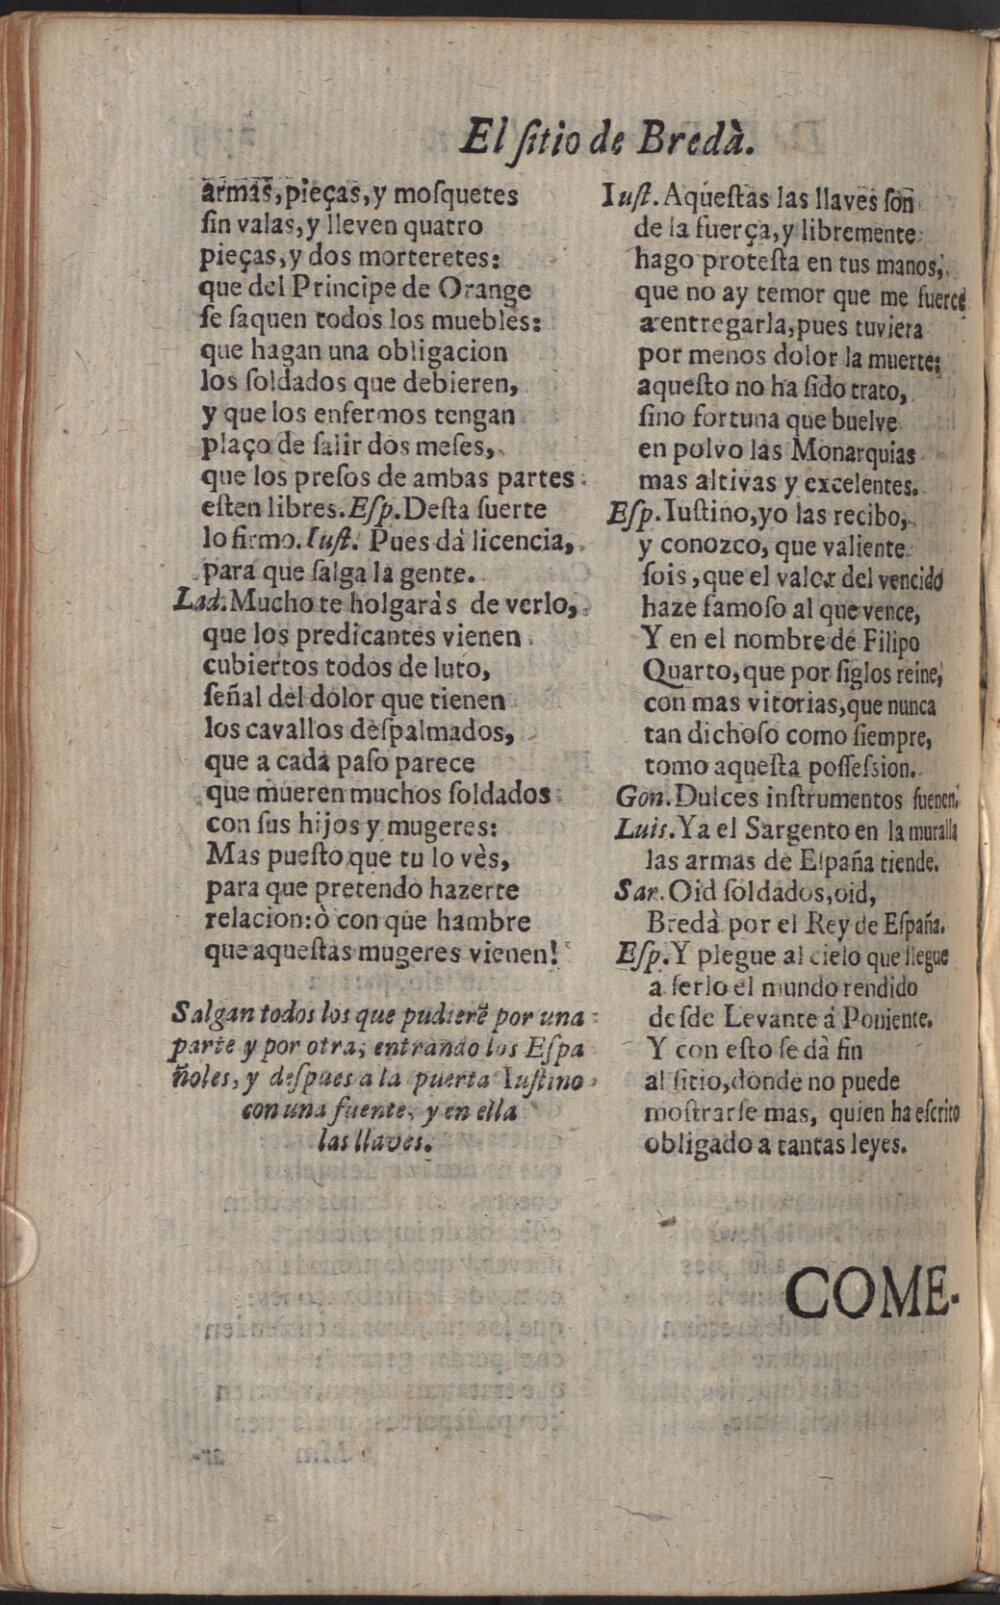 El ſitio de Bredà.
armas, pieças, y moſquetes
ſin valas, y lleven quatro
pieças, y dos morteretes:
que del Principe de Orange
ſe ſaquen todos los muebles:
que hagan una obligacion
los ſoldados que debieren,
y que los enfermos tengan
plaço de ſalir dos meſes,
que los preſos de ambas partes
eſten libres. Eſp. Deſta ſuerte
lo firmo. Iuſt. Pues dà licencia,
para que ſalga la gente.
Lad. Mucho te holgaràs de verlo,
que los predicantes vienen
cubiertos todos de luto,
ſeñal del dolor que tienen
los cavallos deſpalmados,
que a cada paſo parece
que mueren muchos ſoldados
con ſus hijos y mugeres:
Mas pueſto que tu lo vès,
para que pretendo hazerte
relacion: ò con que hambre
que aqueſtas mugeres vienen!
Salgan todos los que pudierẽ por una
parte y por otra; entrando los Eſpa
ñoles, y deſpues a la puerta Iuſtino
con una fuente, y en ella
las llaves.
Iuſt. Aqueſtas las llaves ſon
de la fuerça, y libremente
hago proteſta en tus manos,
que no ay temor que me fuerce
a entregarla, pues tuviera
por menos dolor la muerte;
aqueſto no ha ſido trato,
ſino fortuna que buelve
en polvo las Monarquias
mas altivas y excelentes.
Eſp. Iuſtino, yo las recibo,
y conozco, que valiente
ſois, que el valor del vencido
haze famoſo al que vence,
Y en el nombre de Filipo
Quarto, que por ſiglos reine,
con mas vitorias, que nunca
tan dichoſo como ſiempre,
tomo aqueſta poſſeſsion.
Gon. Dulces inſtrumentos ſuenen.
Luis. Ya el Sargento en la muralla
las armas de Eſpaña tiende.
Sar. Oid ſoldados, oid,
Bredà por el Rey de Eſpaña.
Eſp. Y plegue al cielo que llegue
a ſerlo el mundo rendido
deſde Levante á Poniente.
Y con eſto ſe dà fin
al ſitio, donde no puede
moſtrarſe mas, quien ha eſcrito
obligado a tantas leyes.
COME-